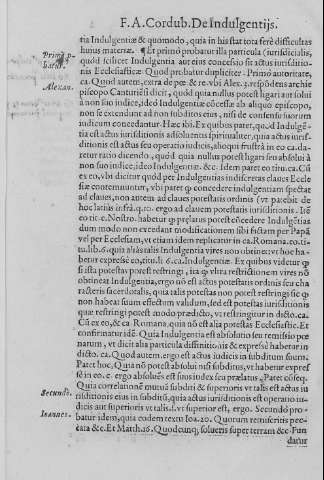 F. A. Cordub. De Indulgentijs.
tia Indulgentiæ & quomodo, quia in his stat tota ferè difficultas
huius materiæ. ¶ Et primò probatur illa particula (iurisdictialis,
Primò p-
batur.
quòd scilicet Indulgentia aut eius concessio sit actus iurisdictio-
nis Ecclesiasticæ. Quod probatur dupliciter. Primò autoritate,
ca. Quod autem, extra de pœ. & re. vbi Alex. 3. respõdens archie
Alexan.
piscopo Canturiési dicit, quòd quia nullus potest ligari aut solui
à non suo iudice, ideo Indulgentiæ cõcessæ ab aliquo episcopo,
non se extendunt ad non subditos eius, nisi de consensu suorum
iudicum concedantur. Hæc ibi. Ex quibus patet, quòd Indulgẽ-
tia est actus iurisditionis absoluentis spiritualiter, quia actus iuris-
ditionis est actus seu operatio iudicis, alioqui frustrà in eo ca. da-
retur ratio dicendo, quòd quia nullus potest ligari seu absolui à
non suo iudice, ideo Indulgentiæ. &c. Idem patet eo titu. ca. Cũ
ex eo, vbi dicitur quòd per Indulgentias indiscretas claues Eccle
siæ contemnuntur, vbi patet ꝙ concedere indulgentiam spectat
ad claues, non autem ad claues potestatis ordinis (vt patebit de
hoc latius infrà. q. 10. ergo ad clauem potestatis iurisditionis. Itẽ
eo tit. c. Nostro. habetur ꝙ prælatus potest cõcedere Indulgẽtias
dum modo non excedant modificationem sibi factam per Papã
vel per Ecclesiam, vt etiam idem replicatur in ca. Romana. eo. ti-
tu. lib. 6. quia aliàs talis Indulgentia vires non obtinet: vt hoc ha-
betur expressè eo, titu. li. 6. ca. Indulgentiæ. Ex quibus videtur ꝙ
si ista potestas potest restringi, ita ꝙ vltra restrictionem vires nõ
obtineat Indulgentia, ergo nõ est actus potestatis ordinis seu cha
racteris sacerdotalis, quia talis potestas non potest restringi sic ꝙ
non habeat suum effectum validum, sed est potestas iurisditionis
quæ restringi potest modo prædicto, vt restringitur in dicto. ca.
Cũ ex eo, & ca Romana, quia nõ est alia potestas Ecclesiastic. Et
confirmatur idẽ. Quia Indulgentia est absolutio seu remissio pœ
narum, vt dicit alia particula diffinitionis & expressè habetur in
dicto. ca. Quod autem. ergo est actus iudicis in subditum suum.
Patet hoc, Quia nõ potest absolui nisi subditus, vt habetur expres
sè in eo. c. ergo absoluẽs est suus iudex seu prælatus. Patet cõseq.
Quia correlationẽ mutuã subditi & superioris vt talis est actus iu
risditionis eius in subditũ, quia actus iurisditionis est operatio iu-
dicis aut superioris vt talis. l. vt superior est, ergo. Secundò pro-
Secundò.
batur idem, quia eodem textu Ioa. 20. Quorum remiseritis pec-
Ioannes.
cata &c. Et Matth. 16. Quodcunq, solueris super terram &c. Fun
datur